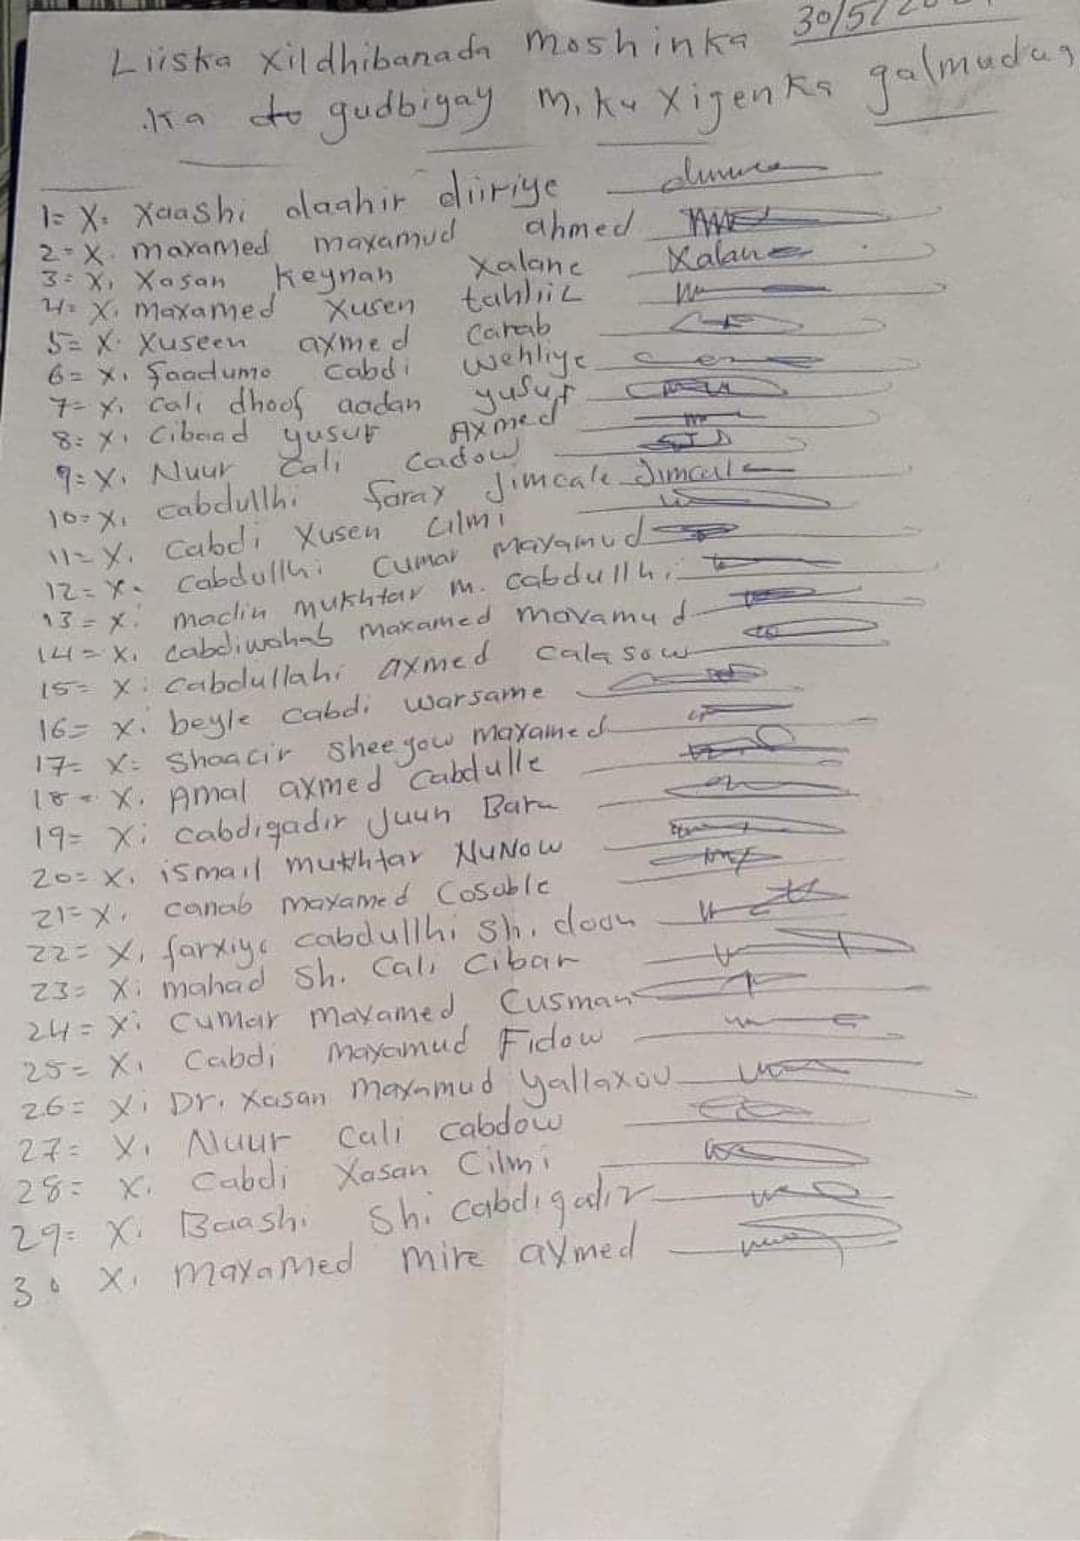 30/5/
Liiska xildhibanada moshinka
ka gudbiyay M. ku xigenka galmudug
1= X. Xaashi daahir diiriye
2= X. maxamed maxamud ahmed
3= X. Xasan Keynan Xalane Xalane
4= X. maxamed Xusen tahliil
5= X. Xuseen axmed carab
6= X. Faadumo cabdi wehliye
7= X. cali dhoof aadan yusuf
8= X. cibaad yusuf Axmed
9= X. Nuur cali cadow
10= X. cabdullhi farax Jimcale Jimcale
11= X. cabdi Xusen cilmi
12= X. cabdullhi cumar maxamud
13= X. maclin mukhtar m. cabdullhi
14= X. cabdiwahab maxamed maxamud
15= X. cabdullahi axmed calasow
16= X. beyle cabdi warsame
17= X= Shaacir sheegow maxamed
18= X. Amal axmed cabdulle
19= X. cabdiqadir Juun Bari
20= X. ismail mukhtar NuNow
21= X. canab maxamed Cosoble
22= X. farxiyo cabdullhi sh. doon
23= X. mahad sh. cali cibar
24= X. cumar maxamed Cusman
25= X. Cabdi maxamud Fidow
26= X. Dr. Xasan maxamud yallaxow
27= X. Nuur cali cabdow
28= X. Cabdi Xasan Cilmi
29= X. Baashi Sh. cabdiqadir
30 X. maxamed mire axmed